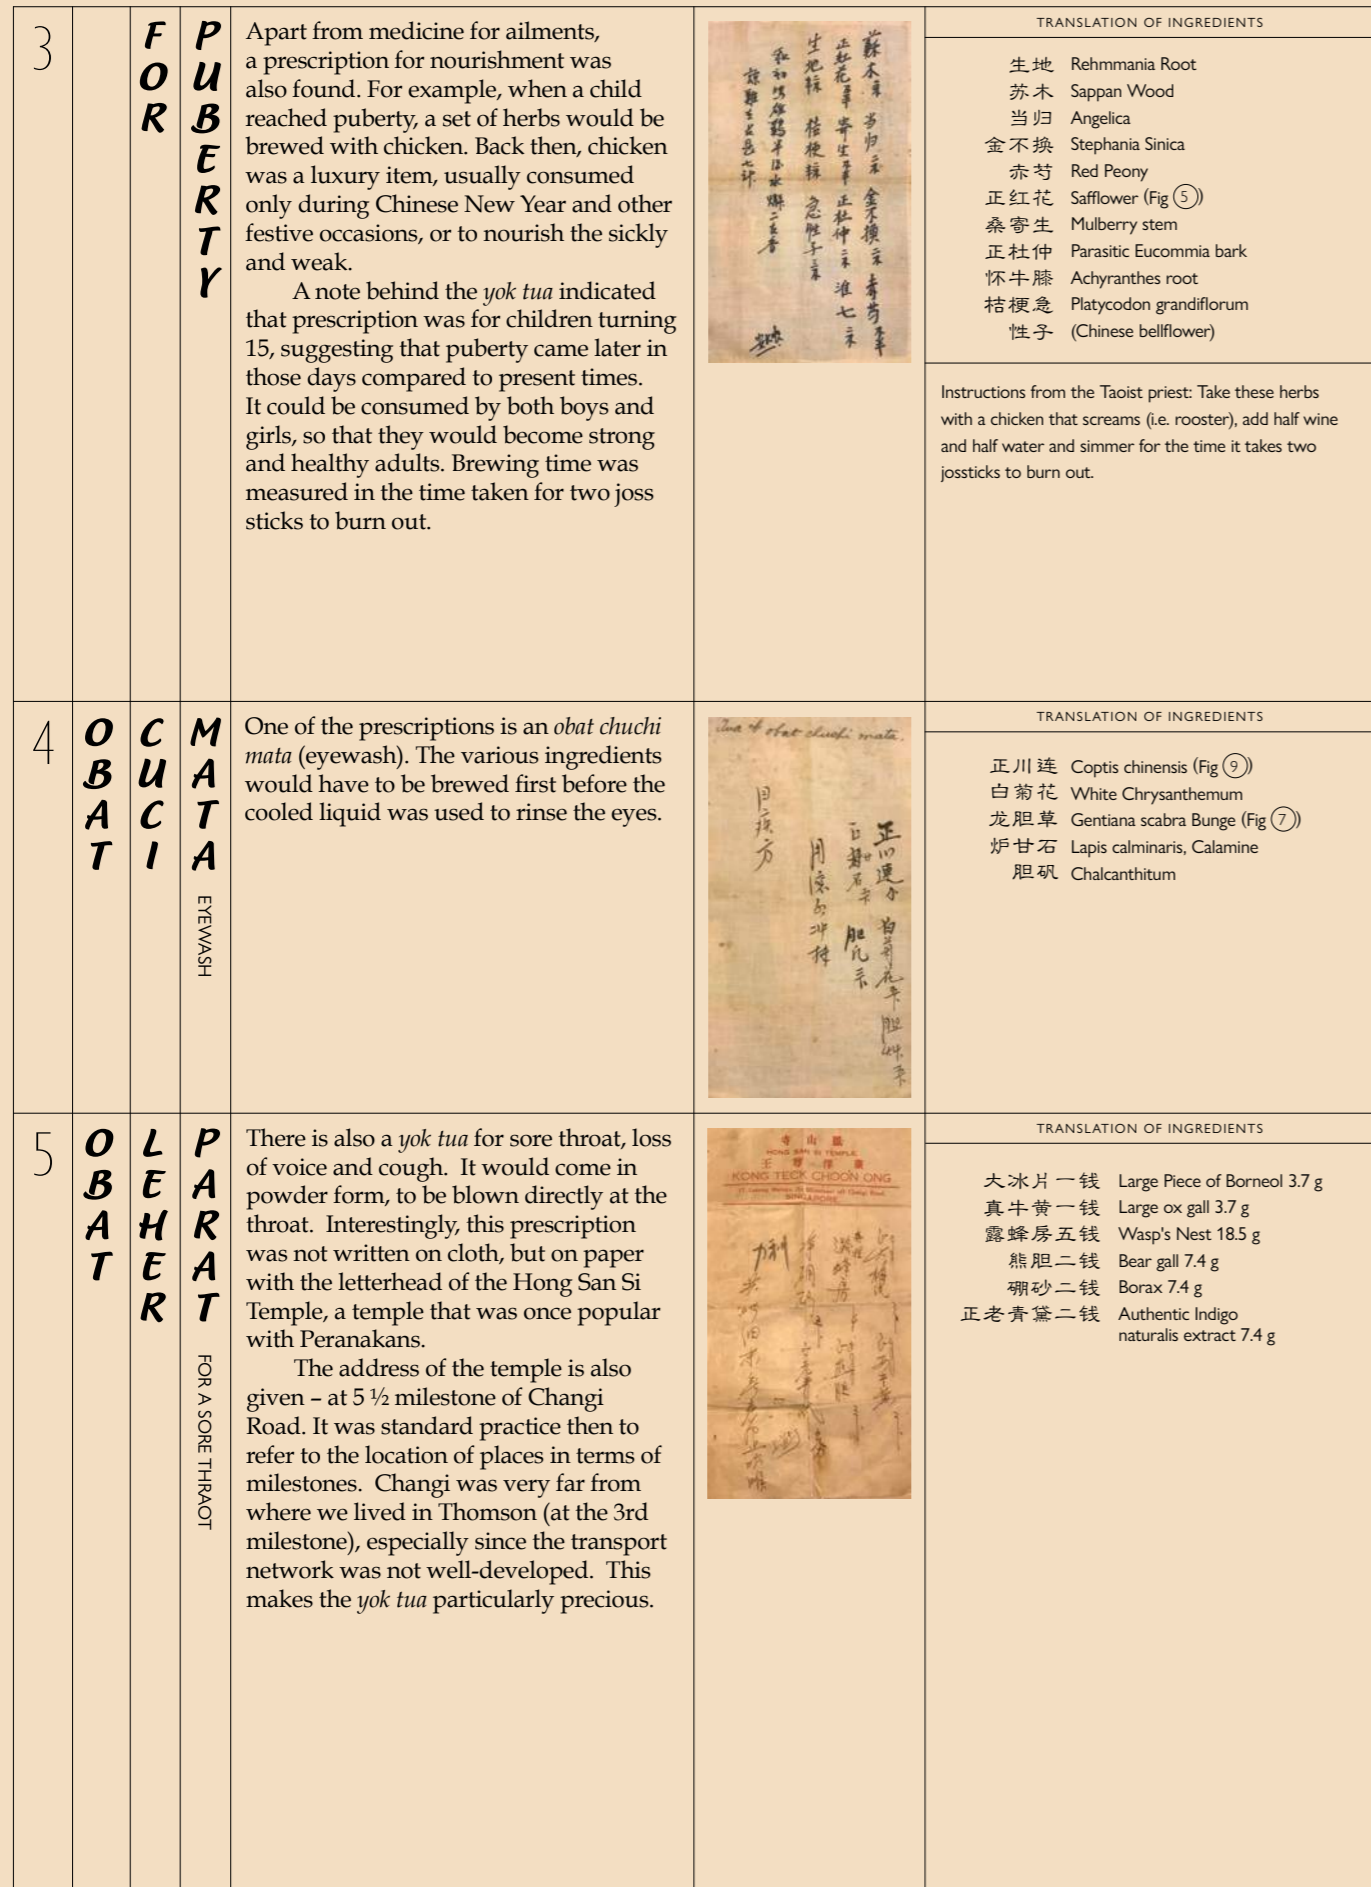 3
FOR
PUBERTY
Apart from medicine for ailments,
a prescription for nourishment was
also found. For example, when a child
reached puberty, a set of herbs would be
brewed with chicken. Back then, chicken
was a luxury item, usually consumed
only during Chinese New Year and other
festive occasions, or to nourish the sickly
and weak.
A note behind the yok tua indicated
that prescription was for children turning
15, suggesting that puberty came later in
those days compared to present times.
It could be consumed by both boys and
girls, so that they would become strong
and healthy adults. Brewing time was
measured in the time taken for two joss
sticks to burn out.
TRANSLATION OF INGREDIENTS
生地 Rehmmania Root
苏木 Sappan Wood
当归 Angelica
金不换 Stephania Sinica
赤芍 Red Peony
正红花 Safflower (Fig 5)
桑寄生 Mulberry stem
正杜仲 Parasitic Eucommia bark
怀牛膝 Achyranthes root
桔梗急 Platycodon grandiflorum
性子 (Chinese bellflower)
Instructions from the Taoist priest: Take these herbs
with a chicken that screams (i.e. rooster), add half wine
and half water and simmer for the time it takes two
jossticks to burn out.
4
OBAT
CUCI
MATA
EYEWASH
One of the prescriptions is an obat chuchi
mata (eyewash). The various ingredients
would have to be brewed first before the
cooled liquid was used to rinse the eyes.
obat chuchi mata.
目疾方
TRANSLATION OF INGREDIENTS
正川连 Coptis chinensis (Fig 9)
白菊花 White Chrysanthemum
龙胆草 Gentiana scabra Bunge (Fig 7)
炉甘石 Lapis calminaris, Calamine
胆矾 Chalcanthitum
5
OBAT
LEHER
PARAT
FOR A SORE THRAOT
There is also a yok tua for sore throat, loss
of voice and cough. It would come in
powder form, to be blown directly at the
throat. Interestingly, this prescription
was not written on cloth, but on paper
with the letterhead of the Hong San Si
Temple, a temple that was once popular
with Peranakans.
The address of the temple is also
given – at 5 ½ milestone of Changi
Road. It was standard practice then to
refer to the location of places in terms of
milestones. Changi was very far from
where we lived in Thomson (at the 3rd
milestone), especially since the transport
network was not well-developed. This
makes the yok tua particularly precious.
HONG SAN SI TEMPLE
KONG TECK CHOON ONG
SINGAPORE
TRANSLATION OF INGREDIENTS
大冰片一钱 Large Piece of Borneol 3.7 g
真牛黄一钱 Large ox gall 3.7 g
露蜂房五钱 Wasp's Nest 18.5 g
熊胆二钱 Bear gall 7.4 g
硼砂二钱 Borax 7.4 g
正老青黛二钱 Authentic Indigo
naturalis extract 7.4 g